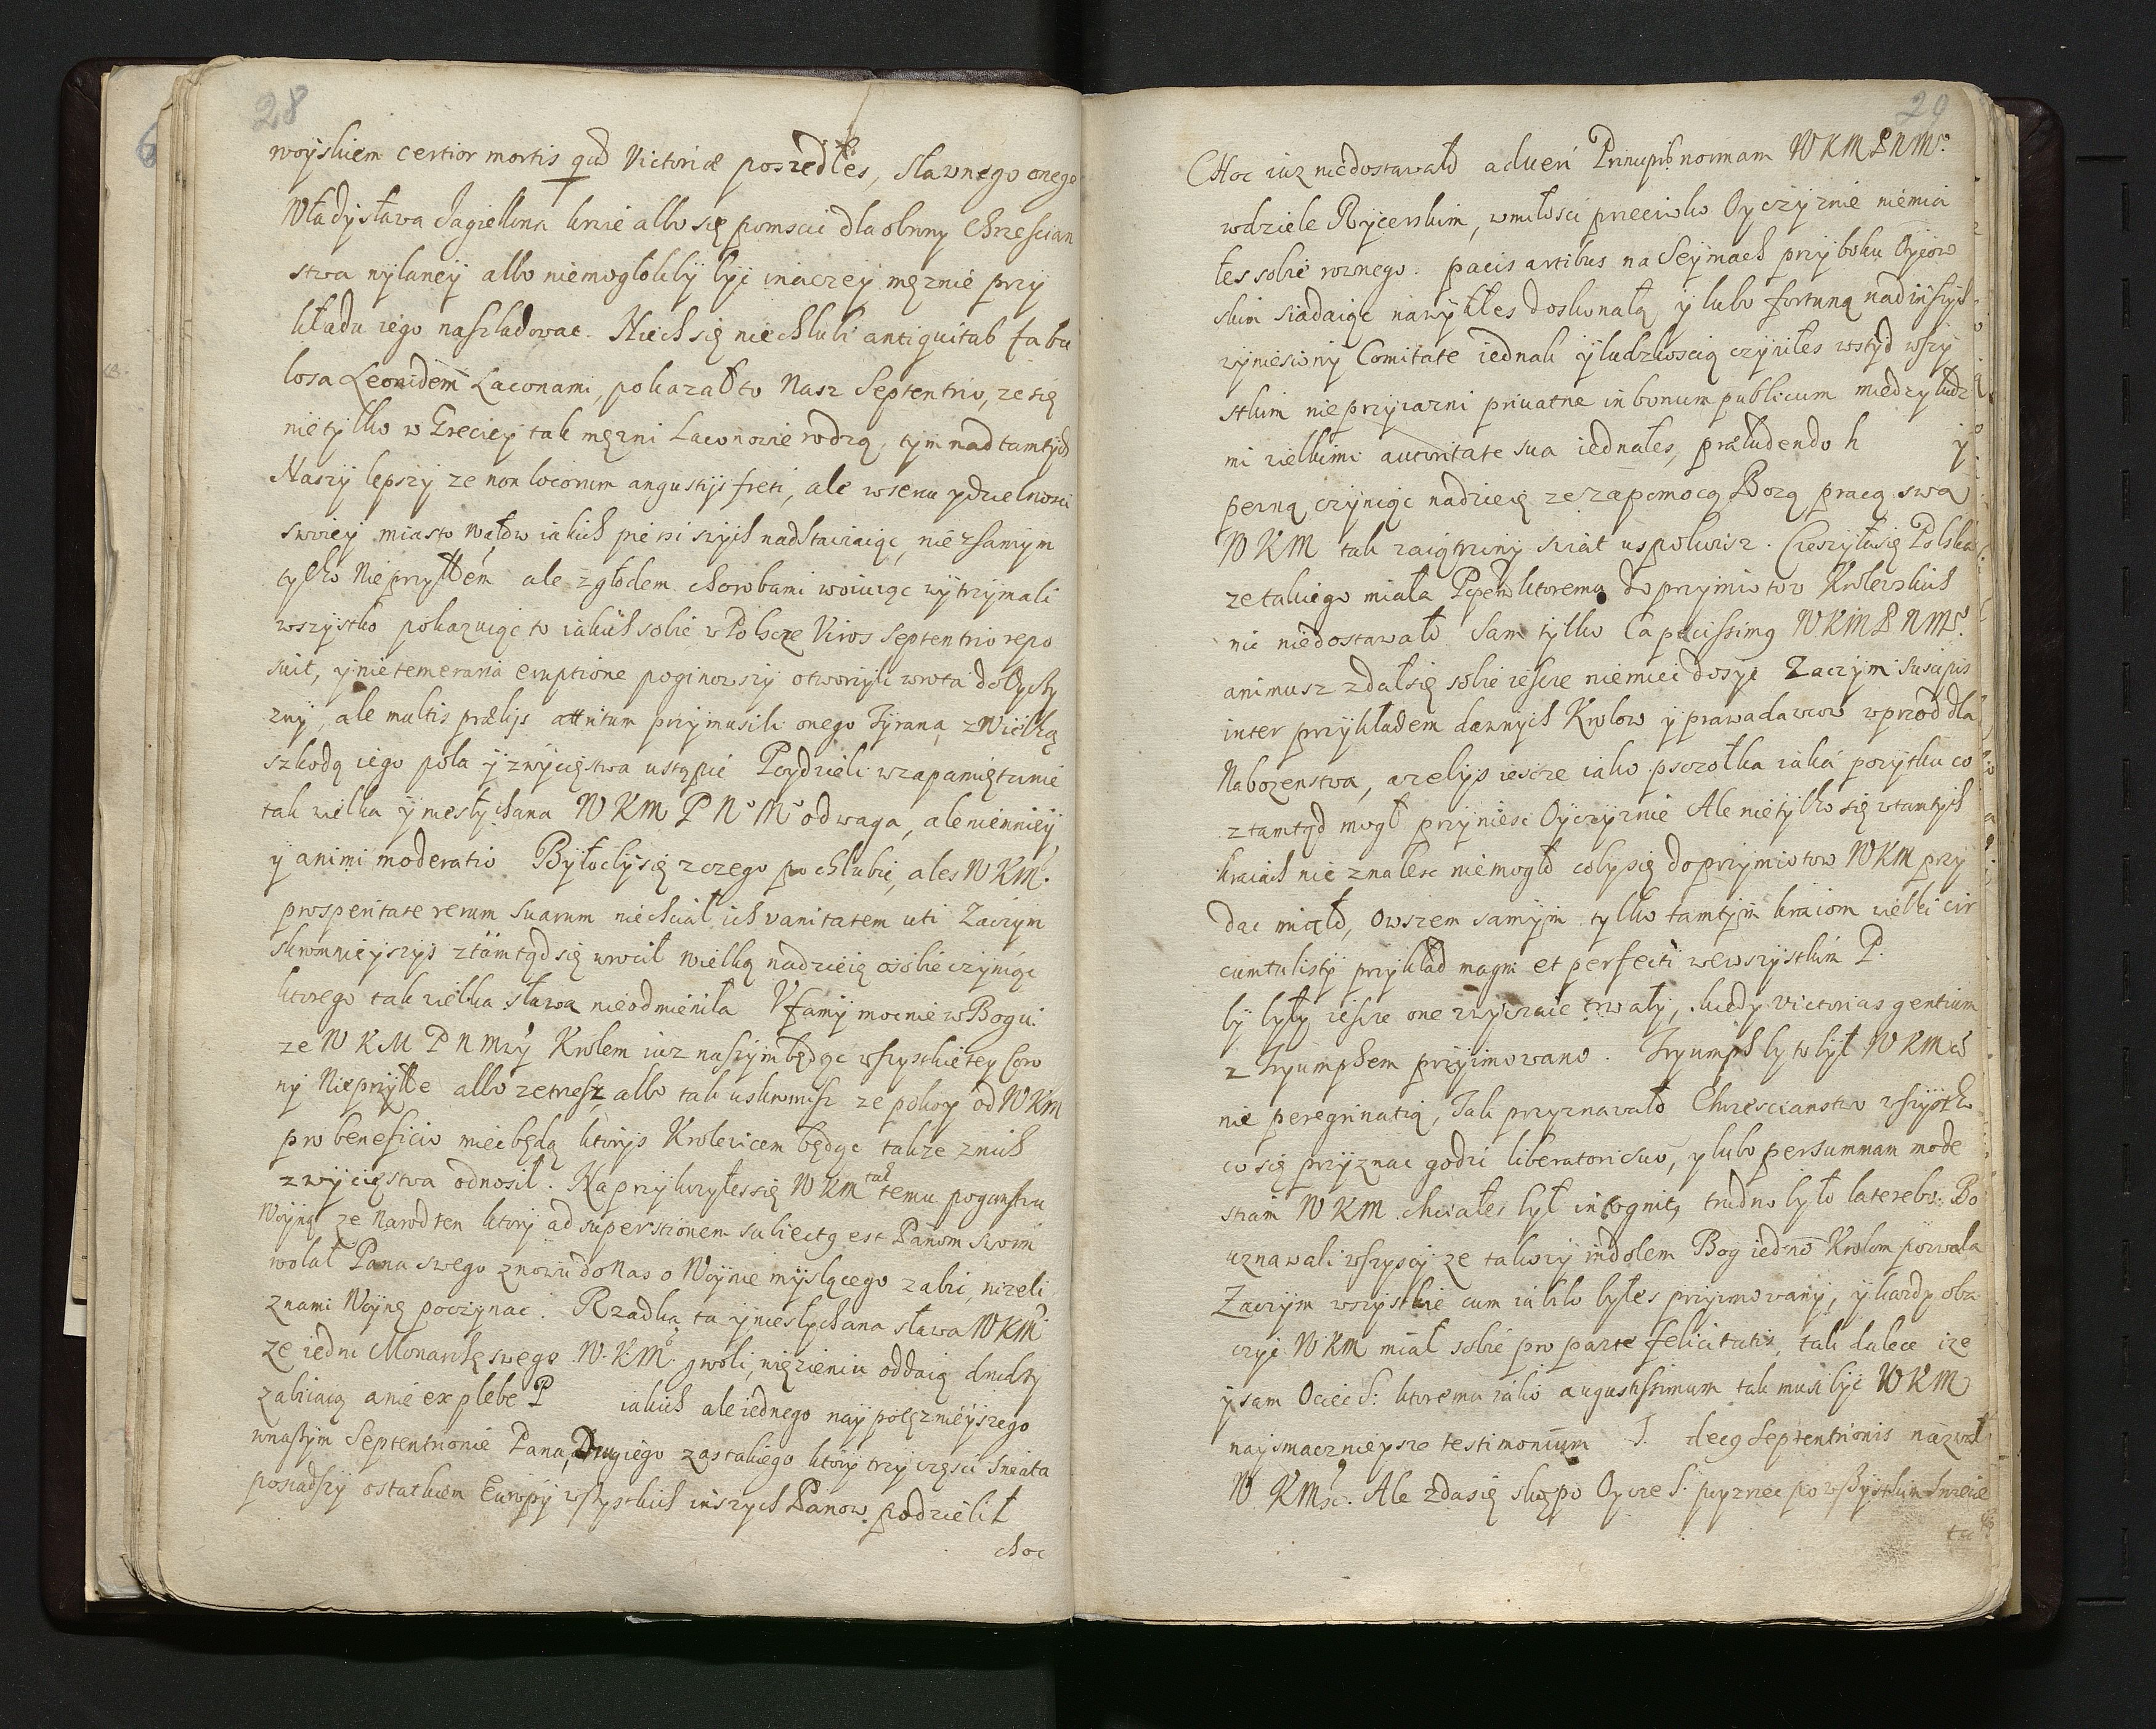 28
woyskiem certior mortis quã Victoriæ poszedłes, sławnego onego
Władysława Jagiellona krwie albo się pomscic dla obrony Chrzescian
stwa wylaney albo niemogłoliby byc inaczey męznie przy
kładu iego nasladowac. Niech się niechlubi antiquitas fabu
losa Leonidem Laconami, pokazał to Nasz Septentrio, ze się
nie tylko w Greciey tak męzni Laconowie rodzą, tym nad tamtych
Naszy lepszy ze non locorum angustijs freti, ale w sercu y dzielnosci
swoiey miasto wałow iakich piersi swych nadstawiaiąc, nie z samym
tylko Nieprzyłem ale z głodem chorobami woiuiąc wytrzymali
wszystko pokazuiąc to iakich sobie w Polszcze Viros Septentrio repo
suit, y nie temeraria eruptione poginowszy otworzyli wrota do Oyczy
zny, ale multis prælijs attritum przymusili onego Tyrana z Wielką
szkodą iego pola y zwycięstwa ustąpic Poydzieli w zapamiętanie
tak wielka y niesłychana W K M P Nº Mº odwaga, ale niemniey
y animi moderatio Byłoclysię z czego pochlubic, ales W K M.
prosperitate rerum suarum niechciał ich vanitatem uti Zaczym
skromnieyszys ztamtąd się wrocił wielką nadzieię o sobie czyniąc
ktorego tak wielka sława nieodmieniła Ufamy mocnie w Bogu.
ze W K M P N Mzy Krolem iuz naszym będąc wszystkie tey Coro
ny Nieprzyłe albo zetrzesz albo tak uskromisz ze pokoy od W K M
pro beneficio miec będą ktorys Krolewicem będąc takze z nich
zwycięstwa odnosił. Naprzykrzyłessię W K M tak temu poganstwu
Woyną ze Narod ten ktory ad superstionem subiectq est Panom swoim
wolał Pana swego znowu do Nas o Woynie myslącego zabic, nizeli
z nami Woynę poczynac. Rzadka ta y niesłychana sława W K M
ze iedni Monarchę swego W. K. M. gwoli, więzieniu oddaią drudzy
zabiaią a nie ex plebe P iakich ale iednego naypotęznieyszego
w naszym Septentrionie Pana, Drugiego zas takiego ktory trzy częsci swiata
posiadszy ostatkiem Europy wszystkich inszych Panow podzielił
choc
29
CHoc iuz niedostawało ad veri Principis normam W K M P N Mº
w dziele Rycerskim, w miłosci przeciwko Oyczyznie niemia
łes sobie rownego. pacis artibus na Seymach przy boku Oycow
skim siadaiąc nawykłes doskonałą y lubo fortuną nad inszych
wyniesiony Comitate iednak y ludzkoscią czyniłes wstyd wszy
stkim nieprzyiazni priuatne in bonum publicum miedzy ludz
mi wielkimi autoritate sua iednałes, præludendo h y
pewną czyniąc nadzieię ze za pomocą Bozą pracą swą
W K M tak zaiątrzony swiat uspokoisz. Cieszyłasię Polska
ze takiego miała Pana ktoremu do przymiotow Krolewskich
nic niedostawało Sam tylko Capacissimq W K M P N M.
animusz zdałsię sobie iescze niemiec dosyc Zaczym suscipis
inter przykładem dawnych Krolow y prawadawcow wprzod dla
Nabozenstwa, a zelys iescze iako pszczołka iaka pozytku co
ztamtąd mogł przyniesc Oyczyznie Ale nie tylko się w tamtych
kraiach nic znalesc niemogło coby się do przymiotow W K M przy
dac miało, Owszem samym tylko tamtym kraiom wielki cir
cumtulistÿ przykład magni et perfecti wewszystkim P.
by były iescze one zwyczaie trwały, kiedy victorias gentium
z Tryumphem przyimowano. Tryumph by to był W K M a
nie peregrinatią, Tak przyznawało Chrzescianstwo wszystko
co się przyznac godzi liberatori suo, y lubo per summam mode
stiam W K M chciałes był incognitq trudno było latere bo: Bo
uznawali wszyscy ze takowy indolem Bog iedno Krolom pozwala
Zaczym wszystkie cum iakilo byłes przyimowany, y kazdy oba
czyc W K M miał sobie pro parte felicitatis, tak dalece ize
y sam Ociec S: ktoremu iako augustissimum tak musi byc W K M
naysmacznieysze testimonium S. decq Septentrionis nazwał
W K Mc. Ale zda się słuszpo Oycze S: przyznac po wszystkim swiecie
tu